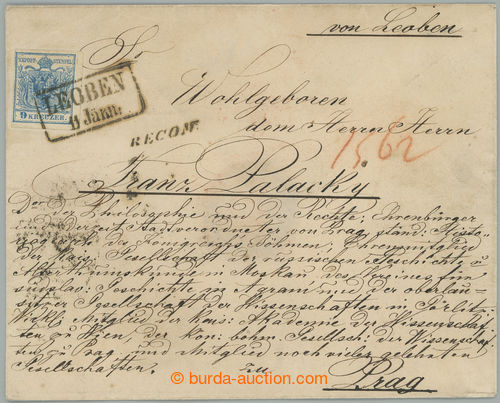 von Leoben
Sr
KAIS. KÖN. POST-STEMPEL
9 KREUZER.
LEOBEN
11 Jänn.
Wohlgeboren
dem Herrn Herrn
RECOM.
1562
Franz Palacky
Dr der Philosophie und der Rechte, Ehrenbürger
und derzeit Stadtverordneter von Prag, ständ: Histo-
des Königreichs Böhmen, Ehrenmitglied
der Kais: Gesellschaft der russischen Geschichte u
Alterthumskunde in Moskau des Vereines für
südslav: Geschichte in Agram und der oberlau-
sitzer Gesellschaft der Wissenschaften in Görlitz,
Wirkl: Mitglied der Kais: Akademie der Wissenschaf-
ten zu Wien, der kön: böhm. Gesellsch: der Wissenschaf-
ten zu Prag und Mitglied noch vieler gelehrten
Gesellschaften. zu
Prag
burda-auction.com